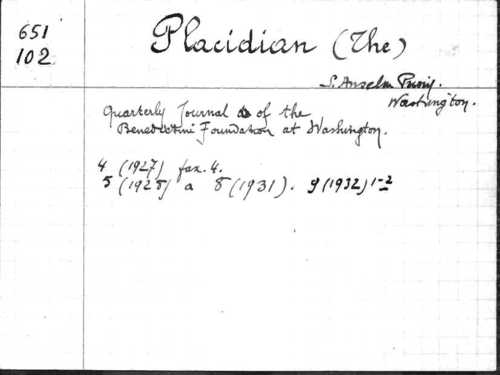 651
102
Placidian (The)
S. Anselm Priory.
Washington.
Quarterly Journal of the
Benedictini Foundation at Washington.
4 (1927) fax. 4.
5 (1928) a 8 (1931). 9 (1932) 1-2